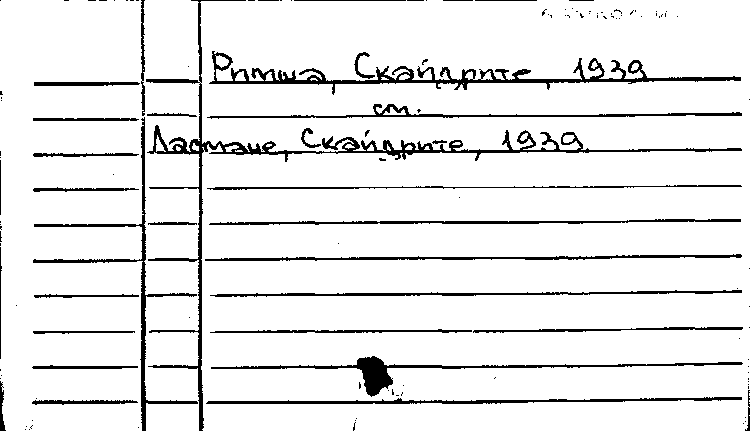 Римша, Скайдрите, 1939
см.
Ласмане, Скайдрите, 1939.